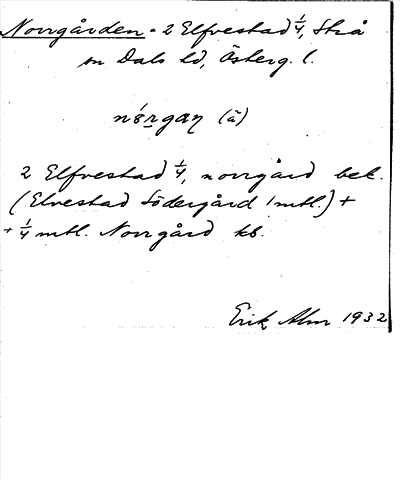 Norrgården = 2 Elfvestad 1/4, Strå
sn Dals hd, Österg. l.
nórgaɳ (ā)
2 Elfvestad 1/4, norrgård bek.
(Elvestad Södergård 1 mtl.) +
+ 1/4 mtl. Norrgård kb.
Erik Alm 1932